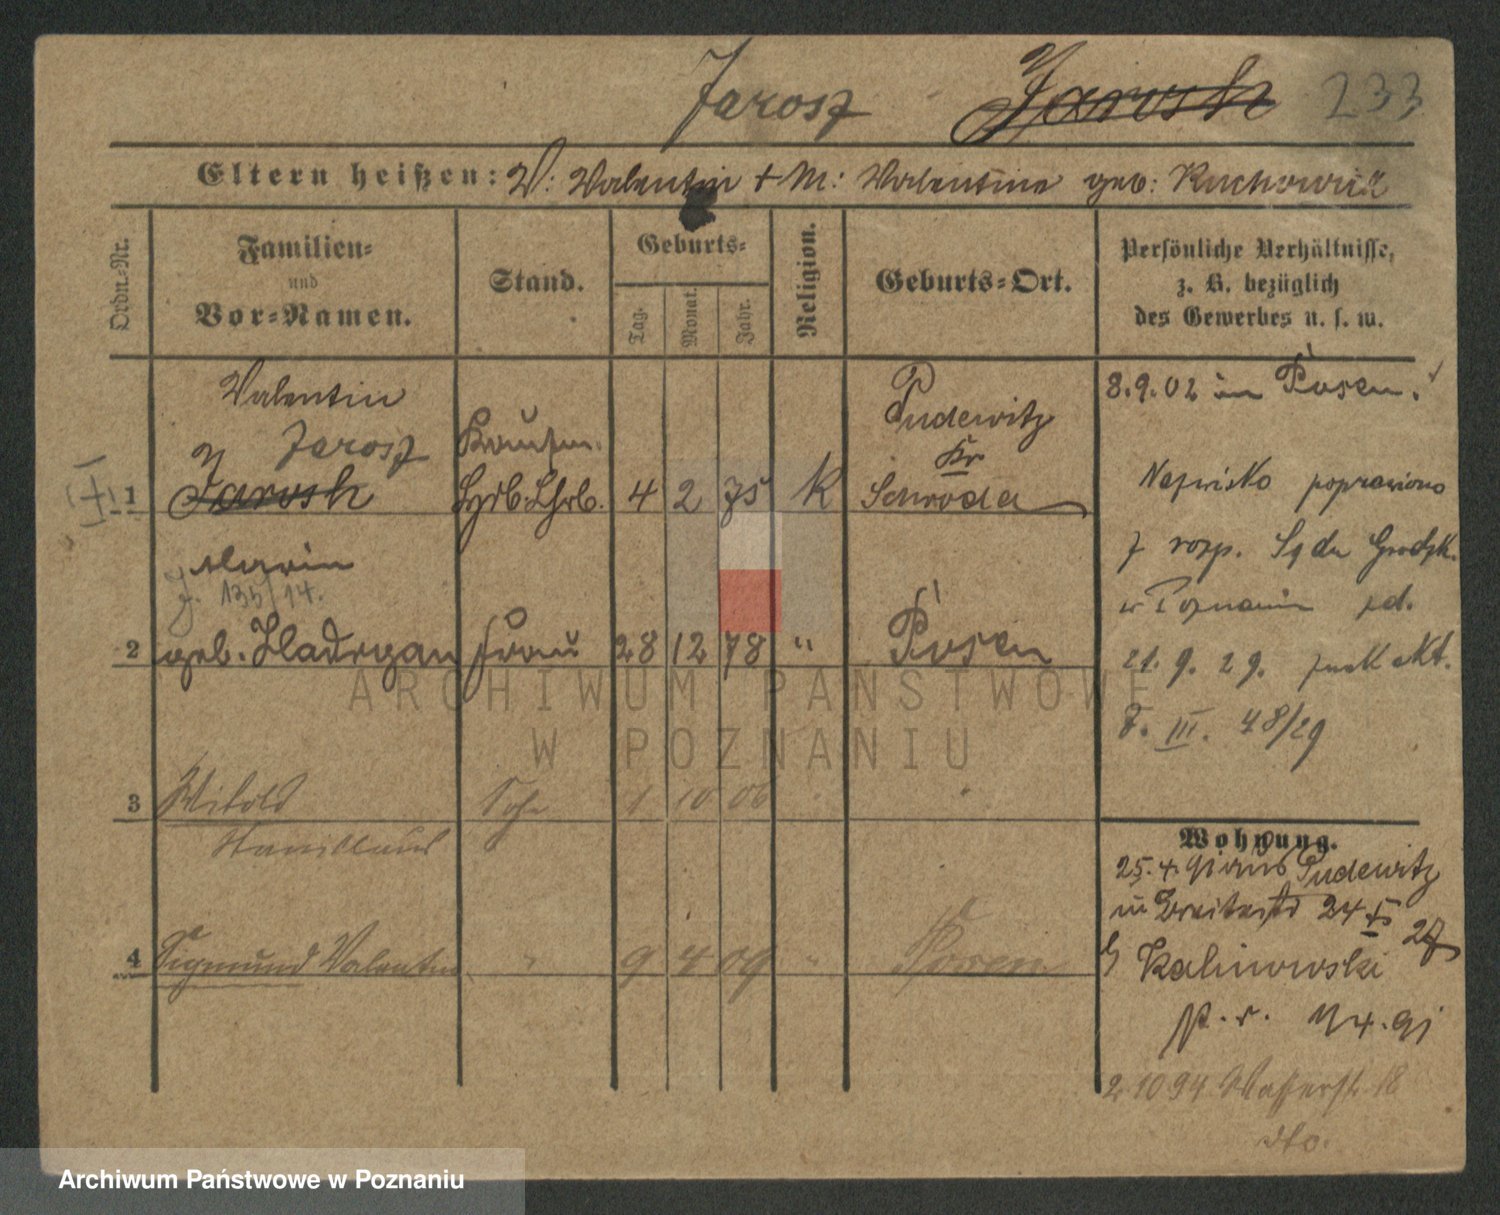 Jarosz Jarosh 233
Eltern heißen: V: Valentin + M: Valentine geb: Kuchowicz
Ordn.-Nr.
Familien-
und
Vor-Namen.
Stand.
Geburts-
Tag.
Monat.
Jahr.
Religion.
Geburts-Ort.
Persönliche Verhältnisse,
z. B. bezüglich
des Gewerbes u. s. w.
Valentin
Jarosz
1 Jarosh 4 2 75 K
Pudewitz
Kr
Schroda
8.9.02 in Posen.
Nazwisko poprawiono
z rozp. Sądu Grodzk.
w Poznaniu zd.
21. 9. 29.
III. 48/29
Maria
J. 135/14.
2 geb. Frau 28 12 78 " Posen
3 Witold Sohn 1 10 06
Stanislaus
4 Sigmund Valentin " 9 4 09 " Posen
Wohnung.
25.4.91 aus Pudewitz
in Breitestr 24
27
Kalinowski
4.91
2 10 94 Wasserstr. 18
dto.
ARCHIWUM PAŃSTWOWE
W POZNANIU
Archiwum Państwowe w Poznaniu